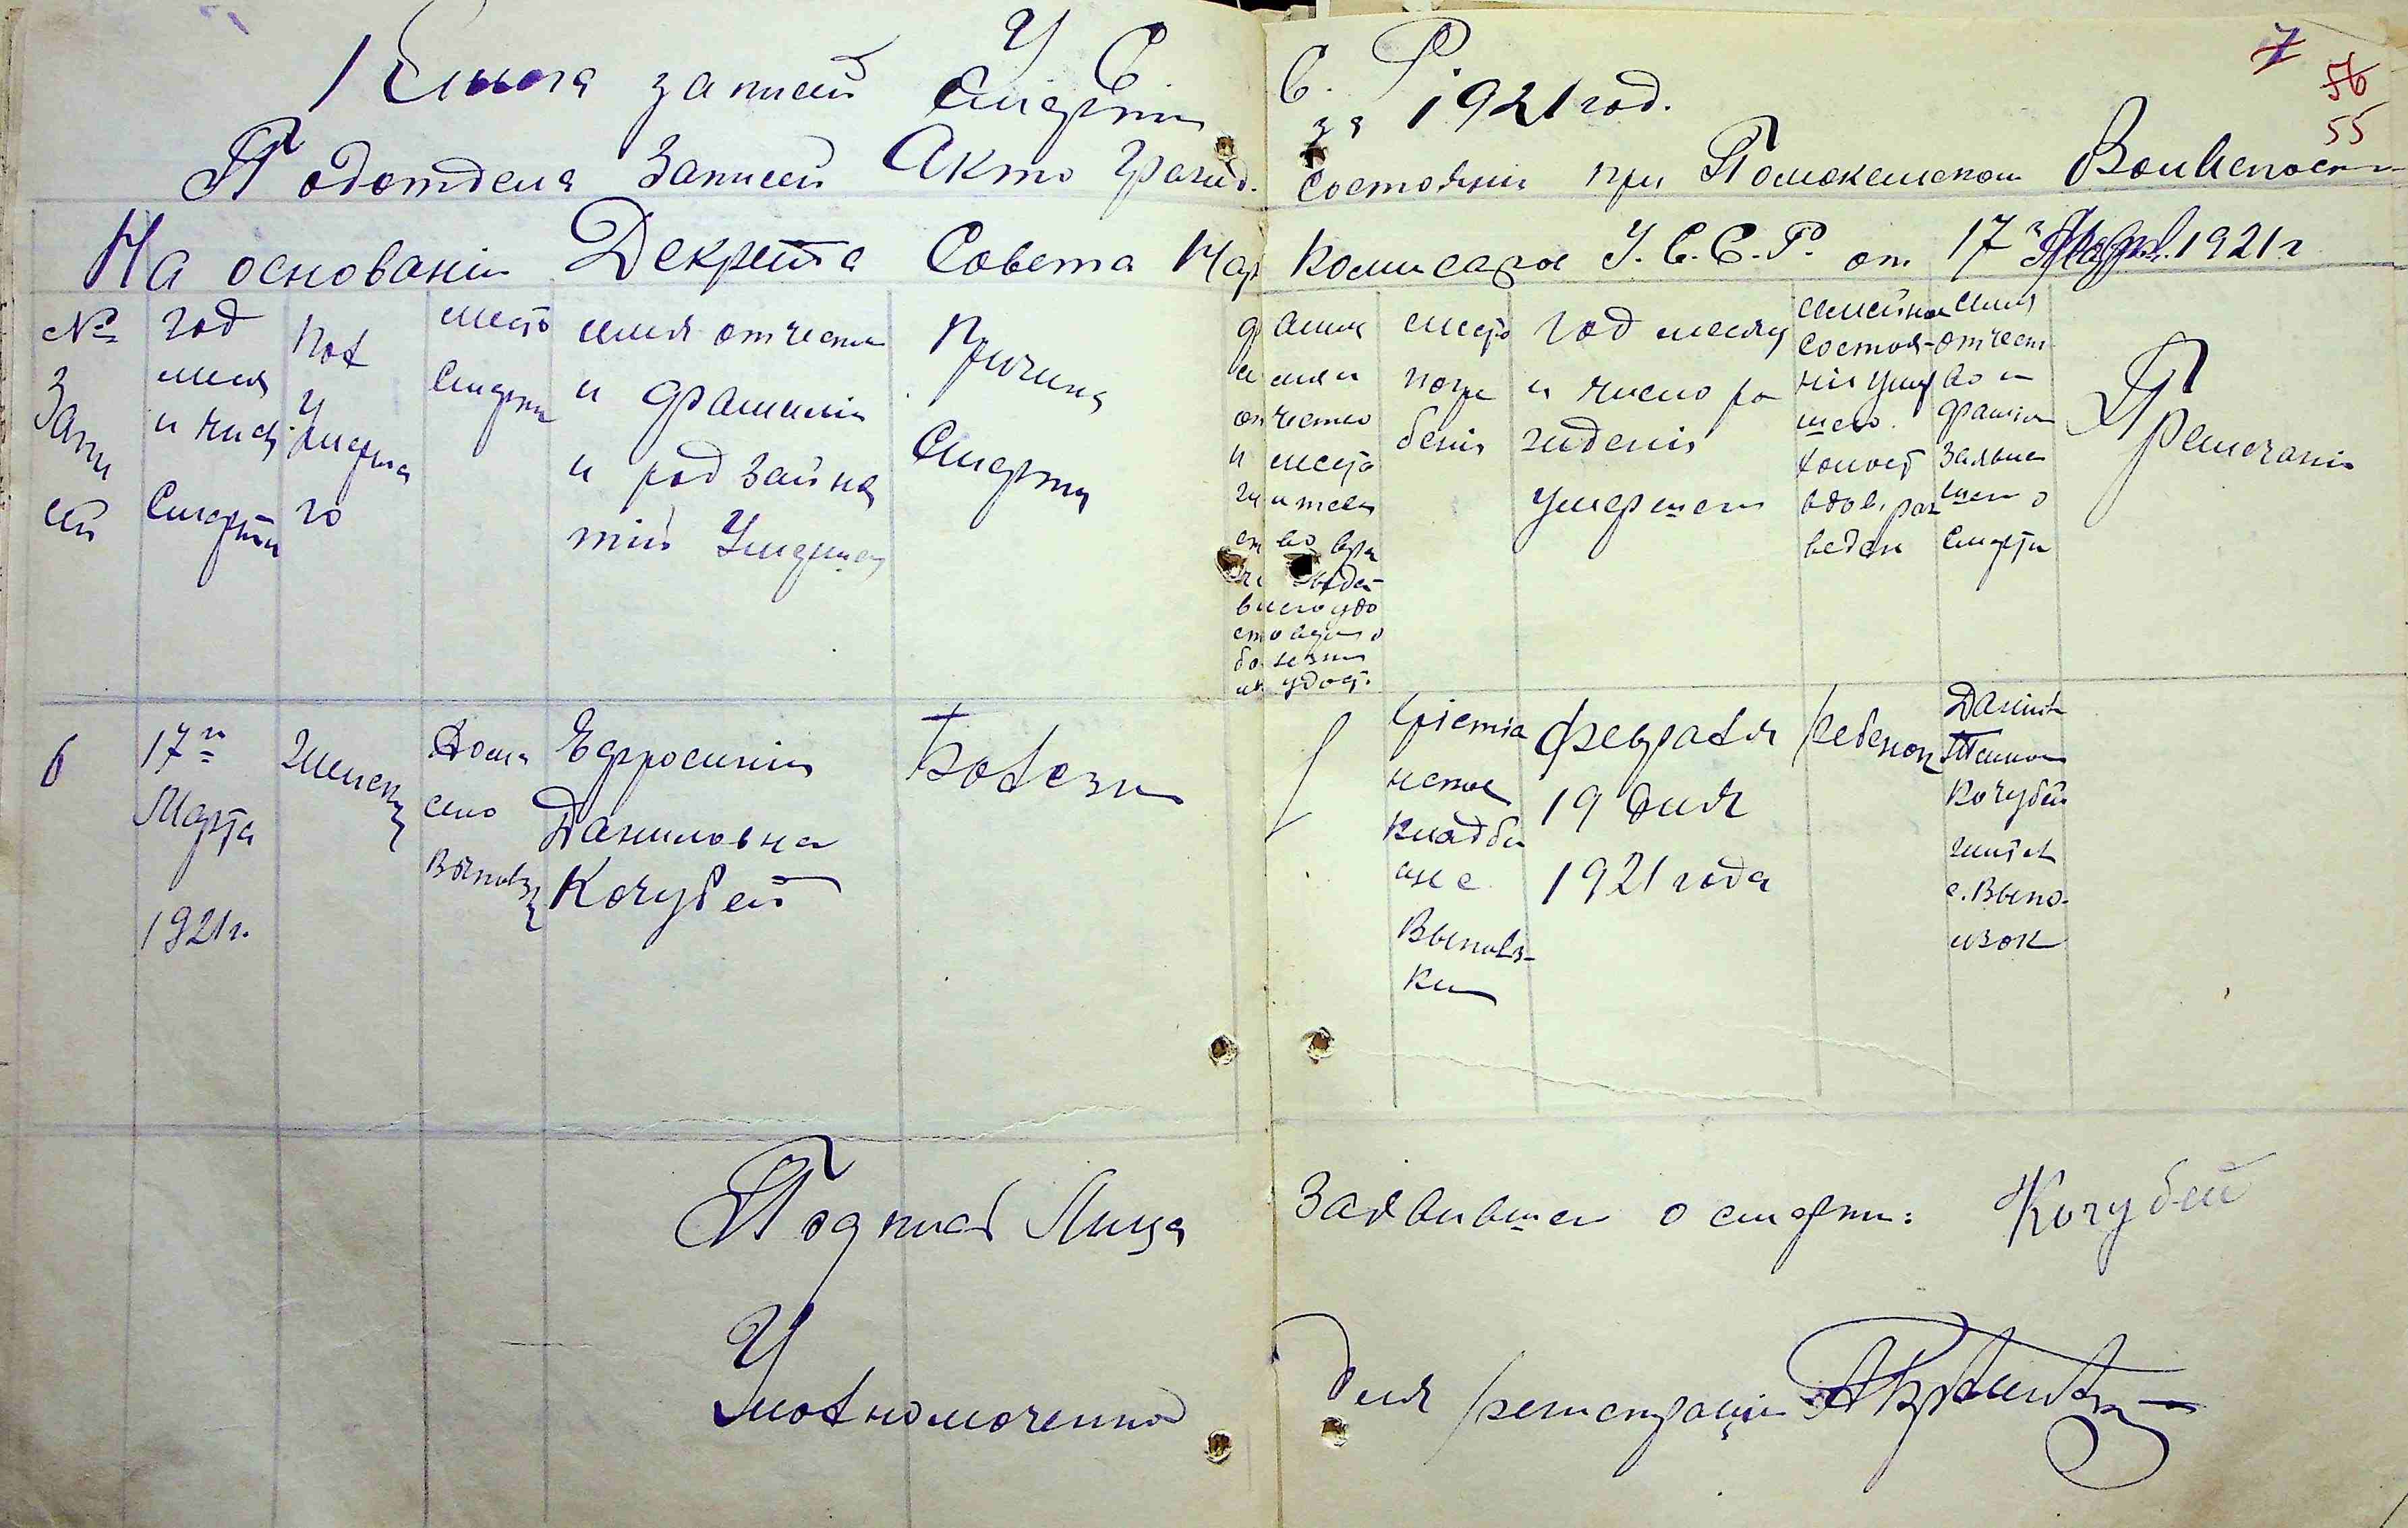 У С. С. Р.
Книга записей Смертии за 1921 год.
7
56
55
Подотдела Записей Акто Гражд. Состояния при Волисполк
На основаніи Декрета Совета Нар Комисаров У.С.С.Р. от 17го 1921г
№
Запи
сей
год
меся
и число
Смерти
пол
у
мерша
го
место
Смерти
имя отчество
и фамилія
и род Заиня
тий Умерша
Причина
Смерти
фамил
имя и
отчество
и место
житель
ство врача
болезни
место
погре
бенія
Год месяц
и число ро
жденія
умершего
семейное
состоя-
нія умер
шего
холост
вдов, раз
веден
имя
отчест
во и
фамил
Заявив
шего о
Смерти
Примечаніе
6
17го
Марта
1921г.
Женск
дома
село
Выповзк
Ефросинія
Даниловна
Кочубей
Болезни
христіа
нское
кладби
ще с.
Выповз-
ки
февраля
19 дня
1921 года
ребенок
Данил
Кочубей
жител
с. Выпо-
взок
Подпись Лица Заявившего о смерти: Кочубей
Уполномоченной для регистраціи